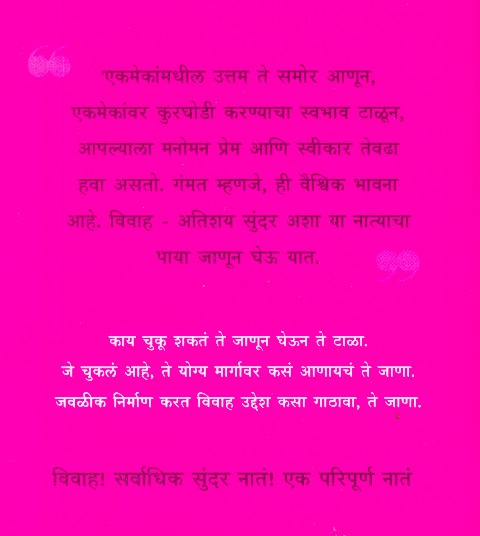 'एकमेकांमधील उत्तम ते समोर आणून,
एकमेकांवर कुरघोडी करण्याचा स्वभाव टाळून,
आपल्याला मनोमन प्रेम आणि स्वीकार तेवढा
हवा असतो. गंमत म्हणजे, ही वैश्विक भावना
आहे. विवाह - अतिशय सुंदर अशा या नात्याचा
पाया जाणून घेऊ यात.
काय चुकू शकतं ते जाणून घेऊन ते टाळा.
जे चुकलं आहे, ते योग्य मार्गावर कसं आणायचं ते जाणा.
जवळीक निर्माण करत विवाह उद्देश कसा गाठावा, ते जाणा.
विवाह! सर्वाधिक सुंदर नातं! एक परिपूर्ण नातं